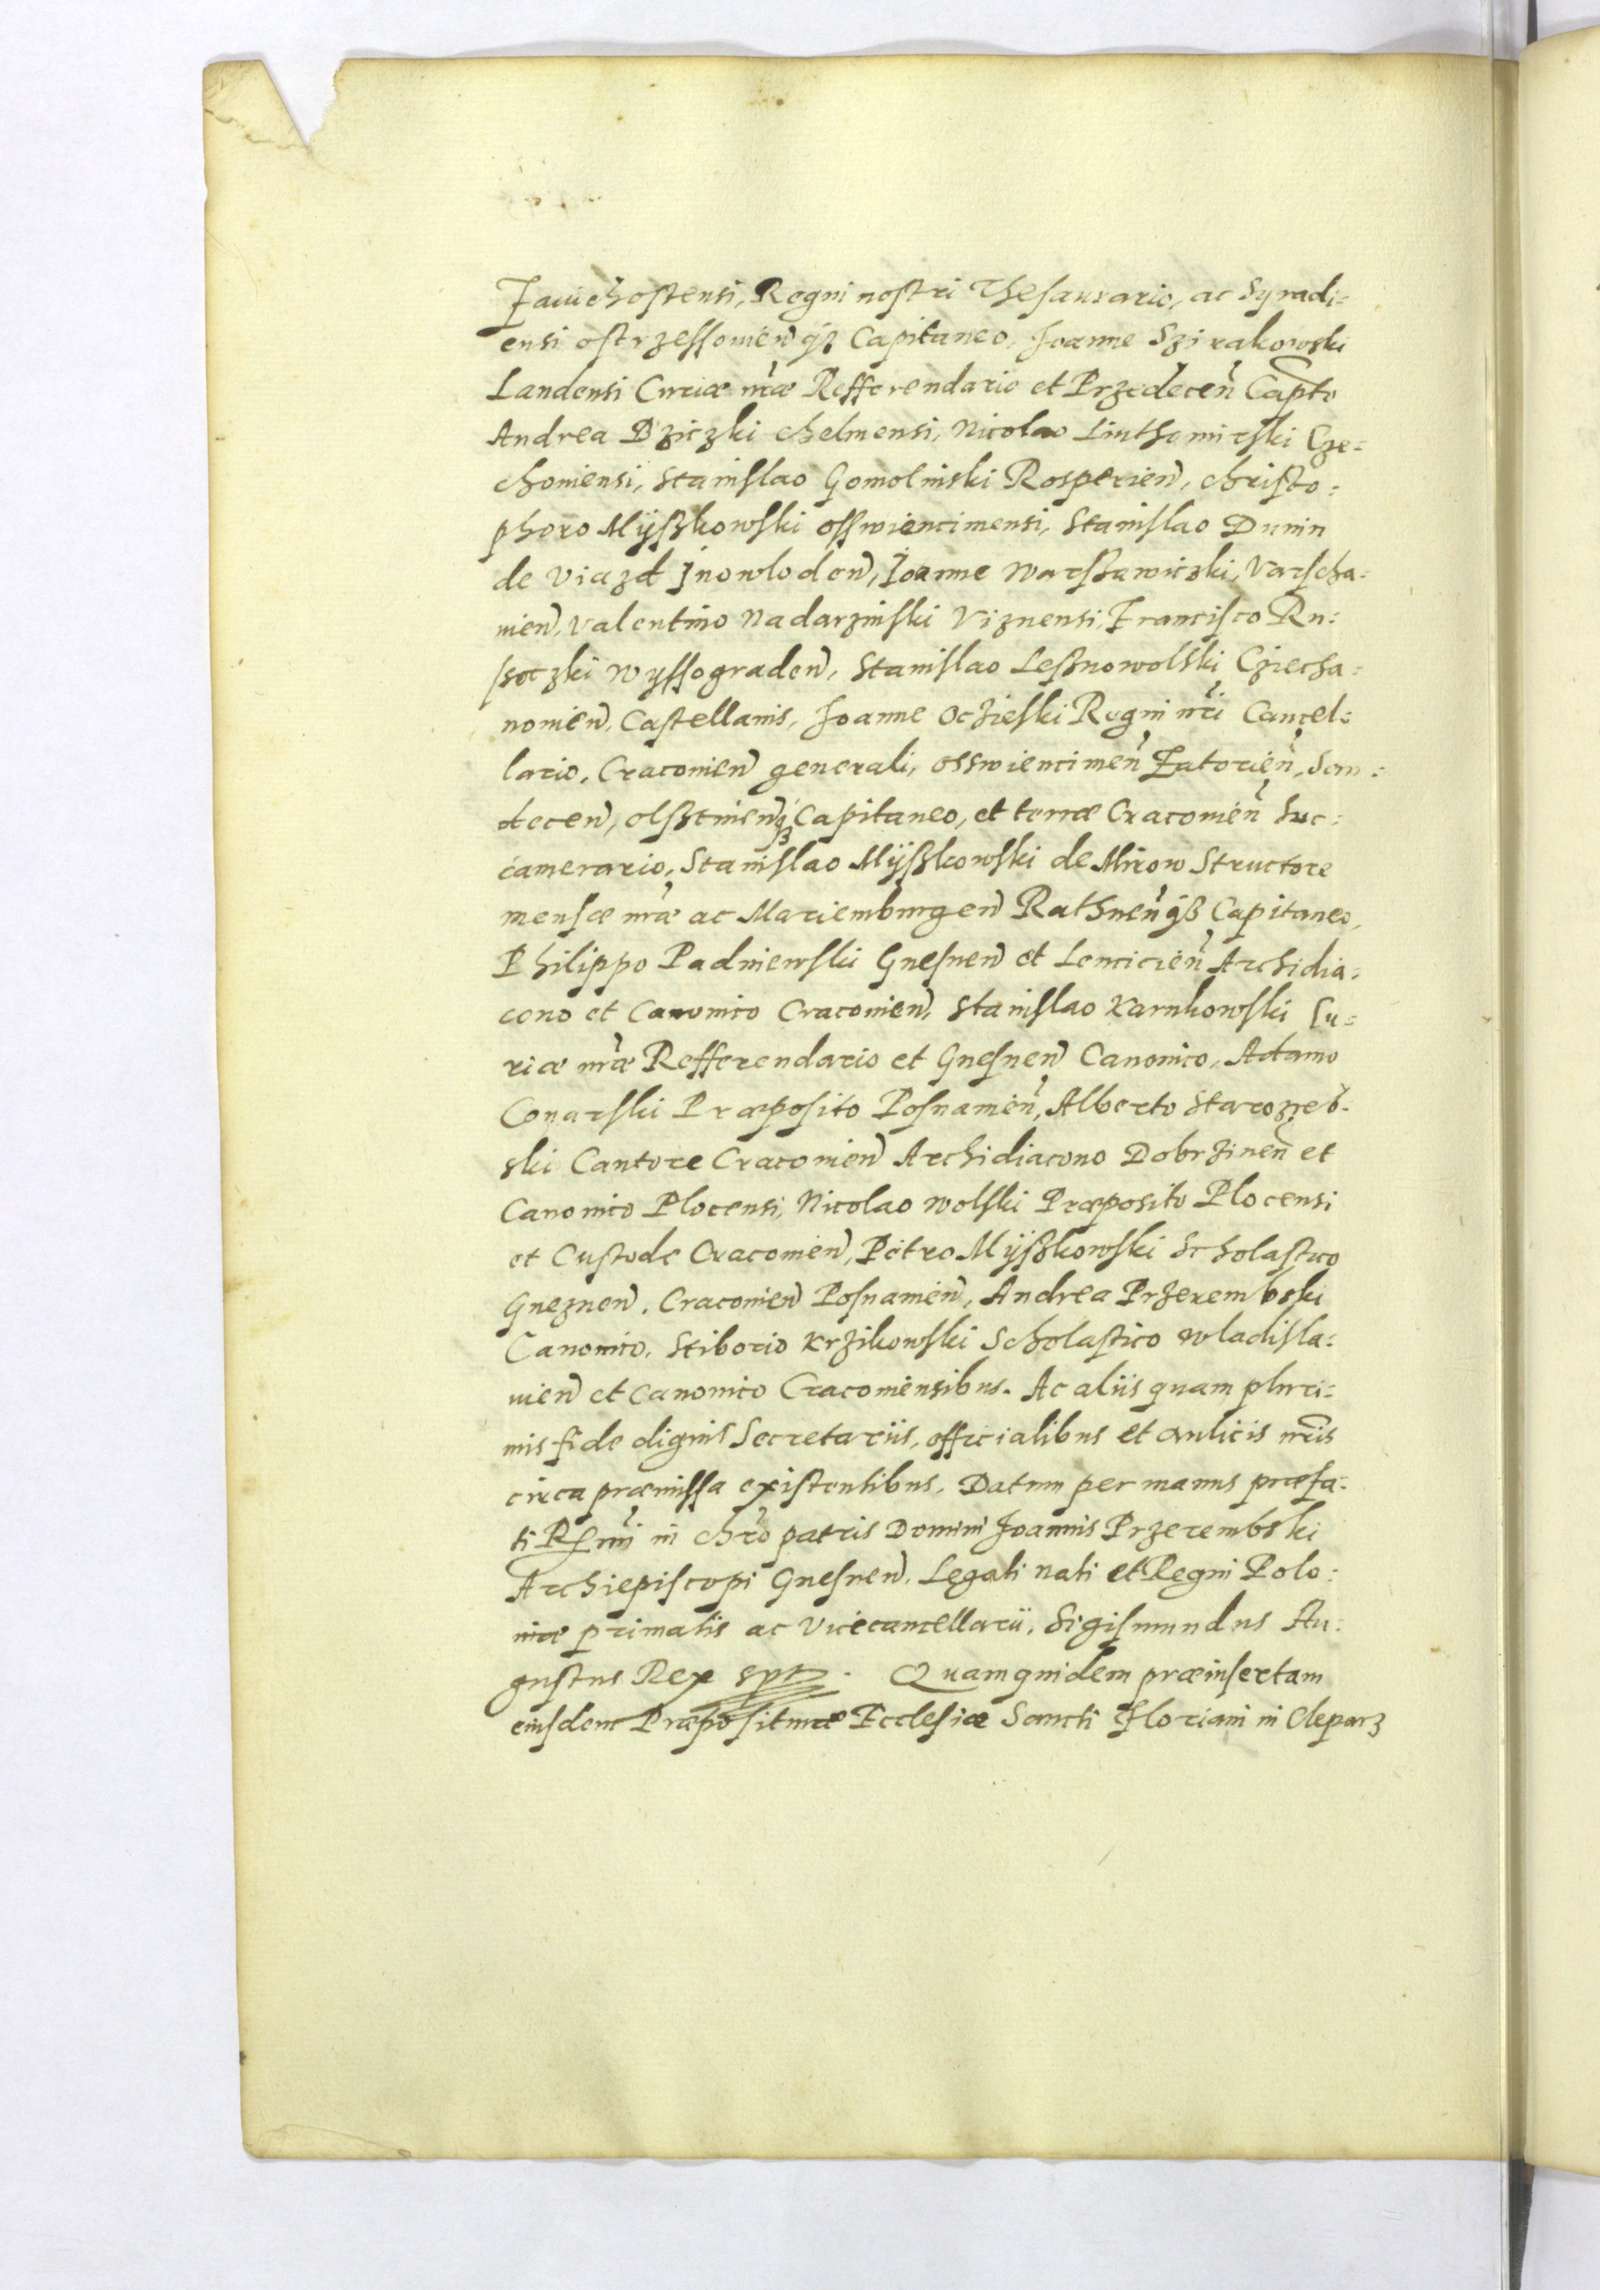 Zawichostensi, Regni nostri Thesaurario, ac Syradi=
ensi ostrzessouien̄ qꝫ Capitaneo, Joanne Szirakowski
Landensi Curiæ nr̄æ Refferendario et Przedecen̄ Capn̄to
Andrea Dziczki chelmensi, Nicolao Liuthomirski Cze=
chouiensi, Stanislao Gomolinski Rosperien̄, christo=
phoro Mÿszkowski osswiencimensi, Stanislao Dunin
de Viazd Jnowloden̄, Joanne Warschawiczki, Varscha=
uien̄, Valentino Nadarzinski Viznensi, Francisco Ru=
soczki Wyssograden̄, Stanislao Lesznowolski Cziecha=
nouien̄, Castellanis, Joanne Oczieski Regni nr̄i Cancel=
lario, Cracouien̄ generali, osswiencimen̄ Zatorien̄, San=
decen̄, olsztinen̄qꝫ Capitaneo, et terræ Cracouien̄ Suc=
camerario, Stanislao Mÿszkowski de Mirow Structore
mensæ nr̄æ ac Mariemburgen̄ Rathnen̄qꝫ Capitaneo,
Philippo Padniewski Gnesnen̄ et Lencicien̄ Archidia=
cono et Canonico Cracouien̄, Stanislao Karnkowski Cu=
riæ nr̄æ Refferendario et Gnesnen̄ Canonico, Adamo
Conarski Præposito Posnanien̄, Alberto Starozreb=
ski Cantore Cracouien̄ Archidiacono Dobrzinen̄ et
Canonico Plocensi, Nicolao Wolski Præposito Plocensi
et Custode Cracouien̄, Petro Mÿszkowski Scholastico
Gneznen̄, Cracouien̄ Posnanien̄, Andrea Przerembski
Canonico, Stiborio Krzikowski Scholastico Wladisla=
uien̄ et Canonico Cracouiensibus. Ac aliis quam pluri=
mis fide dignis Secretariis, officialibus et aulicis nr̄is
circa præmissa existentibus. Datum per manus præfa=
ti Rs̄mi in chr̄o patris Domini Joannis Przerembski
Archiepiscopi Gnesnen̄, Legati nati et Regni Polo=
niæ primatis ac Vicecancellarii. Sigismundus Au=
gustus Rex spt. Quamquidem præinsertam
eiusdem Præpositmæ Ecclesiæ Sancti Floriani in Cleparz